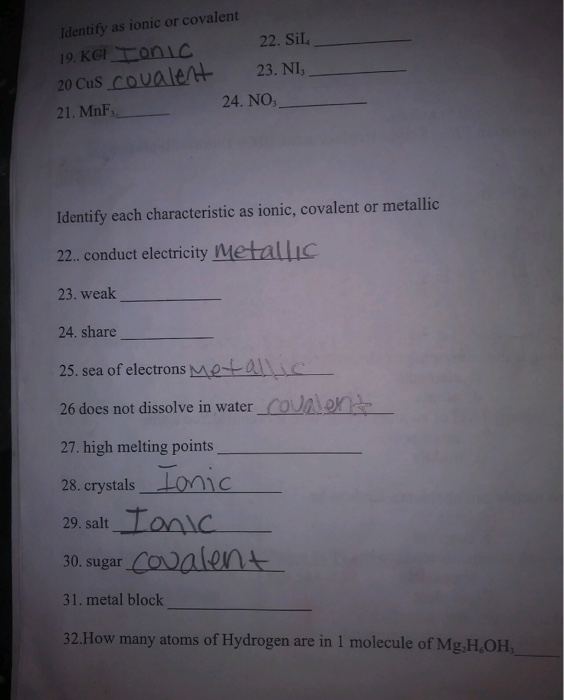 Identify as ionic or covalent
19. KCl Ionic
20 CuS covalent
21. MnF₃
22. SiI₄
23. NI₃
24. NO₃
Identify each characteristic as ionic, covalent or metallic
22.. conduct electricity Metallic
23. weak
24. share
25. sea of electrons Metallic
26 does not dissolve in water covalent
27. high melting points
28. crystals Ionic
29. salt Ionic
30. sugar covalent
31. metal block
32.How many atoms of Hydrogen are in 1 molecule of